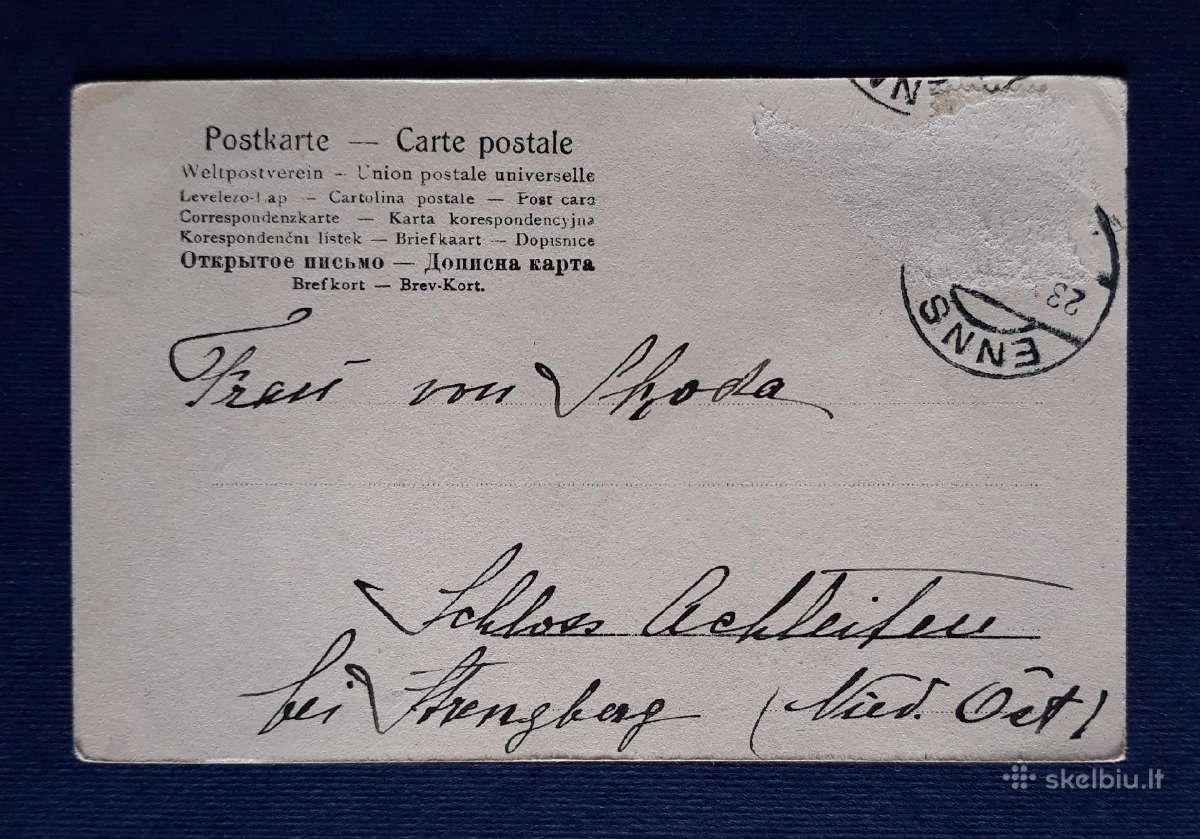 Postkarte — Carte postale
Weltpostverein – Union postale universelle
Levelezo-Lap — Cartolina postale — Post card
Correspondenzkarte — Karta korespondencyjna
Korespondenční lístek — Briefkaart — Dopisnice
Открытое письмо — Дописна карта
Brefkort — Brev-Kort.
ENNS
23
Frau von Skoda
Schloss Achleiten
bei Strengberg (Nied. Öst)
skelbiu.lt